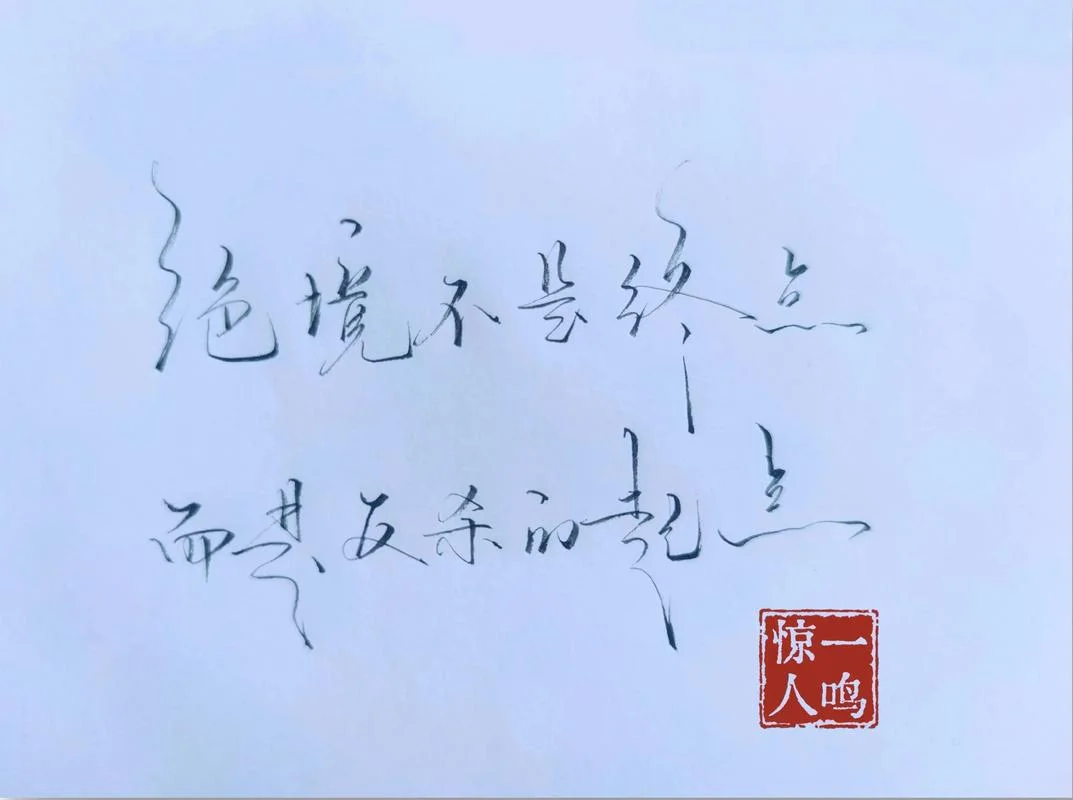 绝境不是终点
而是反杀的起点
一鸣惊人